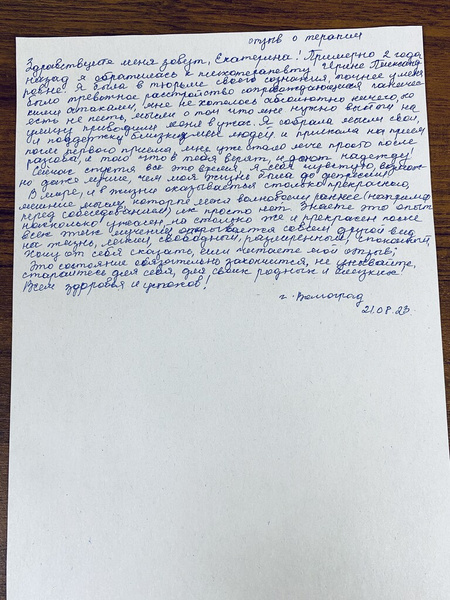 отзыв о терапии
Здравствуйте меня зовут, Екатерина! Примерно 2 года
назад я обратилась к психотерапевту Ирине
Я была в тюрьме своего сознания, точнее у меня
было тревожное расстройство сопровождающееся паничес
кими атаками, мне не хотелось абсолютно ничего, ни
есть ни пить, мысли о том что мне нужно выйти на
улицу приводили меня в ужас. Я собрала мысли свои,
и поддержку близких мне людей и приехала на прием
после первого приема, мне уже стало легче просто после
разговора, и того что в тебя верят, и дают надежду!
Сейчас спустя все это время, я себя чувствую,
но даже лучше, чем моя жизнь была до депрессии,
В мире, и в жизни оказывается столько прекрасного,
лишние мысли, которые меня волновали раннее (например
перед собеседованием) их просто нет. Знаете это опыт
насколько ужасен, на столько же и прекрасен после
всех этих мучений открывается совсем другой вид
на жизнь, легкий, свободный, размеренный, спокойный,
Хочу от себя сказать, если читаете мой отзыв;
Это состояние обязательно закончится, не унывайте,
старайтесь для себя, для своих родных и близких!
Всем здоровья и успехов!
г. Волгоград
21.08.23.